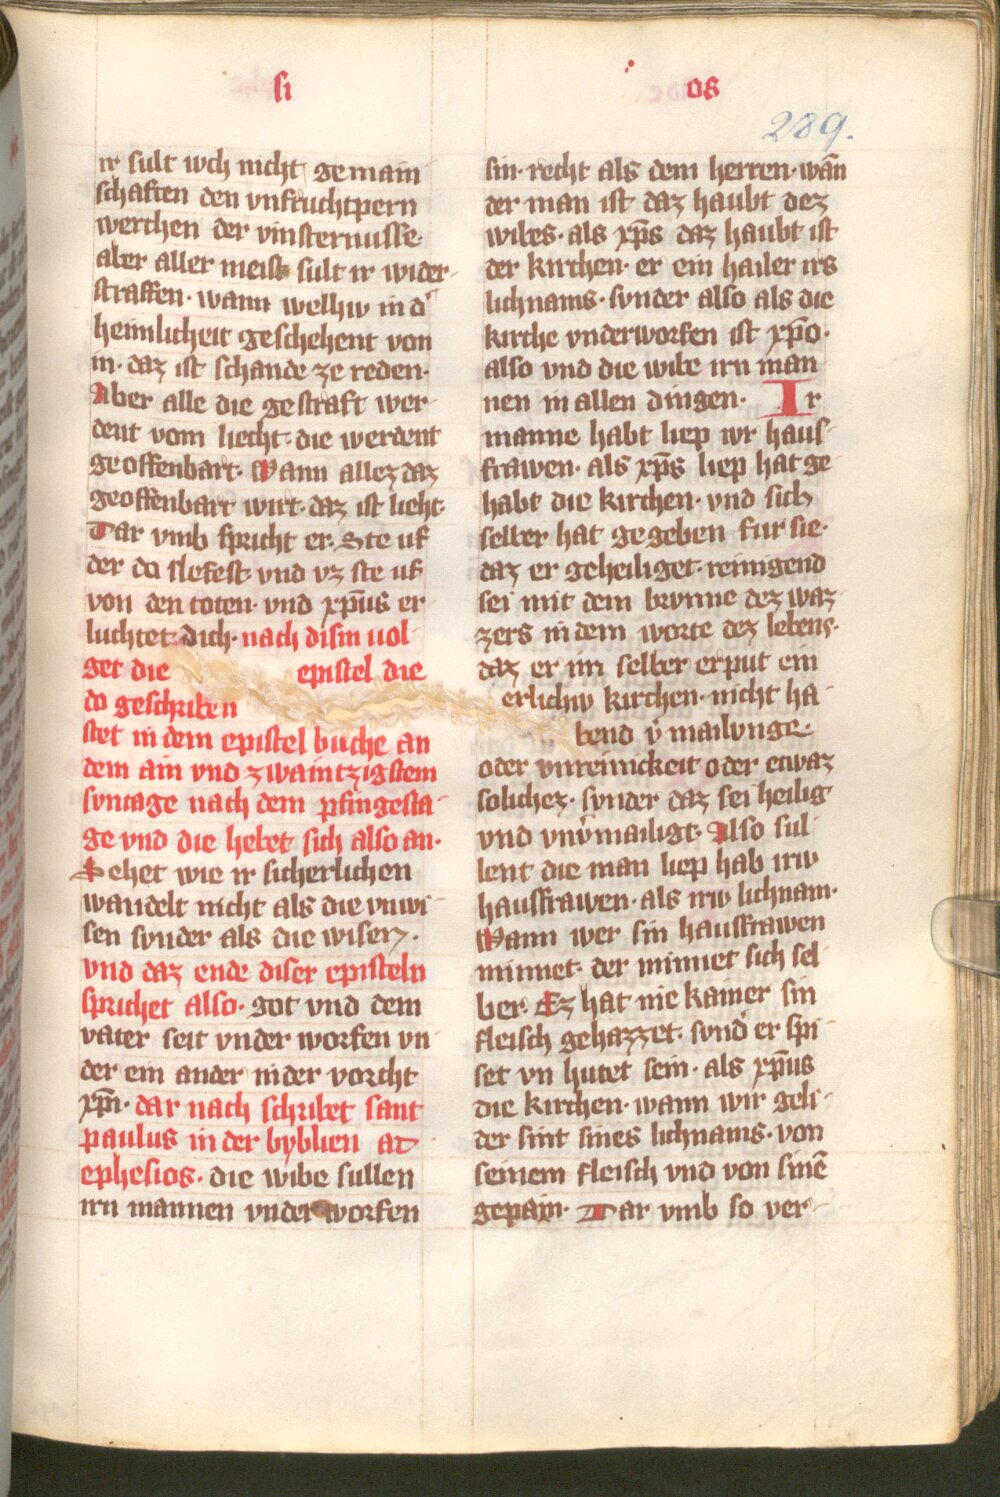 si
os
289.
ir sult wch nicht gemain
schaften den vnfruchtpern
werchen der vinsternusse·
aber aller meist sult ir wider
straffen· wann welhiv in d͛
heimlicheit geschehent von
in· daz ist schande ze reden·
Aber alle die gestraft wer
dent vom liecht· die werdent
geoffenbart· Wann allez daz
geoffenbart wirt· daz ist lieht·
Dar vmb spricht er· Ste uf
der do slefest· vnd vz ste uf
von den toten· vnd xp̄us er
luchtet dich· nach dism uol
get die epistel die
do geschriben
stet in dem epistel buche an
dem ain vnd zwaintzigstem
svntage nach dem pfingesta
ge vnd die hebet sich also an·
Sehet wie ir sicherlichen
wandelt nicht als die vnwi
sen svnder als die wisen·
vnd daz ende diser episteln
sprichet also· got vnd dem
vater seit vnder worfen vn
der ein ander in der vorcht
xp̄i· dar nach schribet sant
paulus in der byblien ad
ephesios· die wibe sullen
irn mannen vnder worfen
sin· recht als dem herren· wan̄
der man ist daz haubt dez
wibes· als xp̄s daz haubt ist
der kirchen· er ein hailer irs
lichnams· svnder also als die
kirche vnderworfen ist xp̄o·
also vnd die wibe irn man
nen in allen dingen· Ir
manne habt liep iwr haus
frawen· als xp̄s liep hat ge
habt die kirchen· vnd sich
selber hat gegeben fur sie·
daz er geheiliget· reinigend
sei mit dem brvnne dez waz
zers in dem worte dez lebens·
daz er im selber erput ein
erlichiv kirchen· nicht ha
bend v͛mailvnge·
oder vnreinickeit oder etwaz
soliches· svnder daz sei heilig
vnd vnv͛mailigt· Also sul
lent die man liep hab iriv
hausfrawen· als iriv lichnam·
Wann wer sin hausfrawen
minnet· der minnet sich sel
ber· Ez hat nie kainer sin
fleisch gehazzet· svnd͛ er spi
set vn hutet sein· als xp̄us
die kirchen· wann wir geli
der sint sines lichnams· von
seinem fleisch vnd von sinē
gepain· Dar vmb so ver